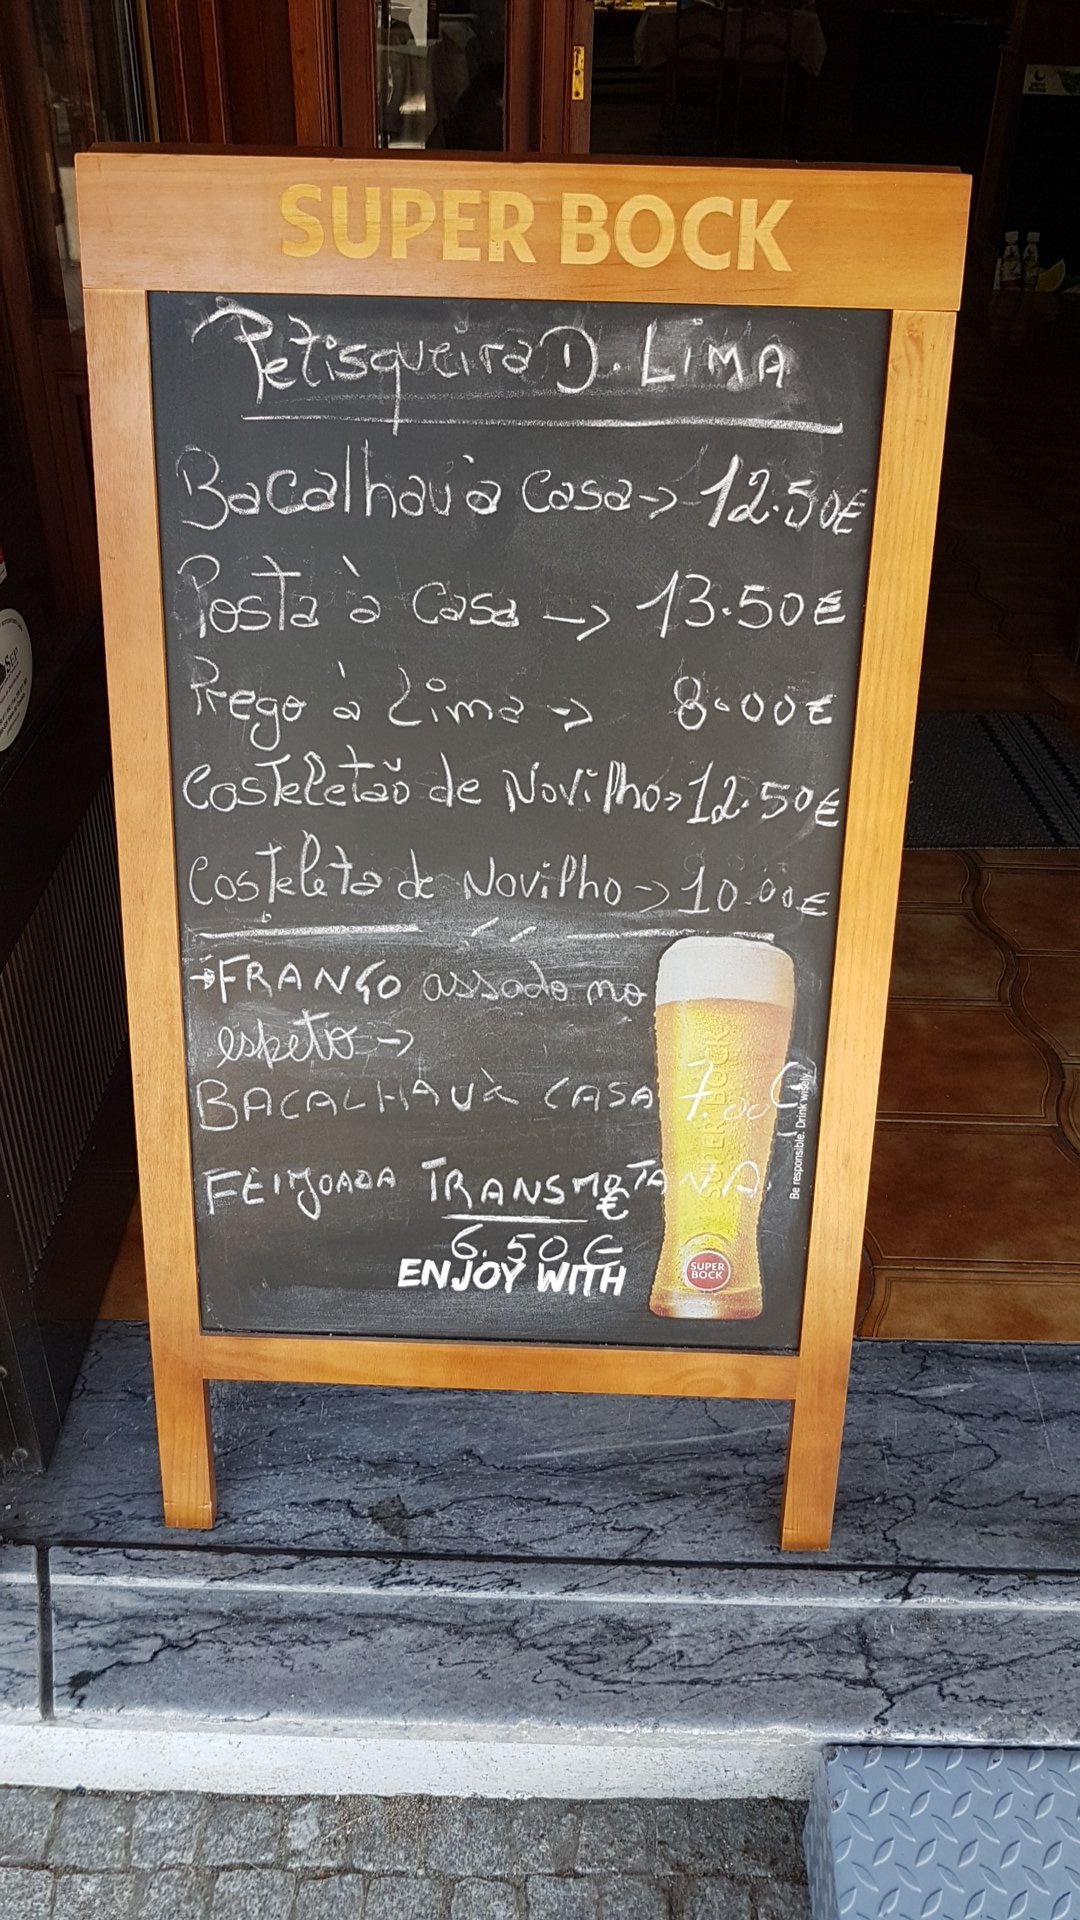 SUPER BOCK
Petisqueira D. LIMA
Bacalhau à Casa -> 12.50€
Posta à Casa -> 13.50€
Prego à Lima -> 8.00€
Costeletão de Novilho -> 12.50€
Costeleta de Novilho -> 10.00€
-> FRANGO assado no
espeto ->
BACALHAU À CASA 7.00€
FEIJOADA TRANSMOTANA.
€
6.50€
ENJOY WITH
SUPER BOCK
SUPER
BOCK
Be responsible. Drink wisely.